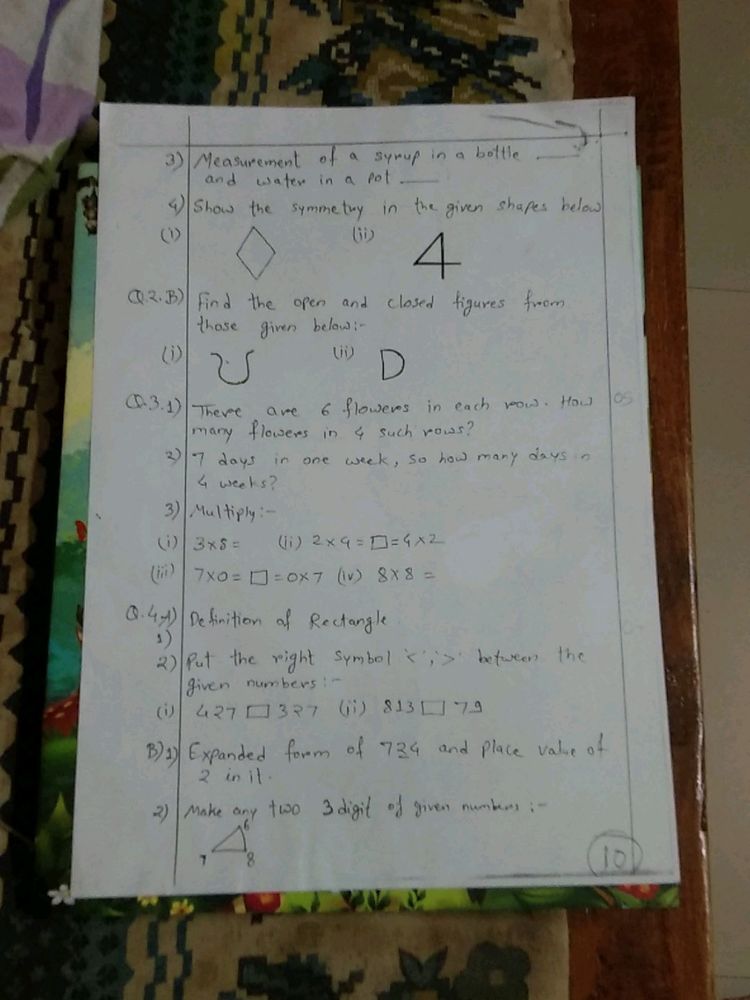 3) Measurement of a syrup in a bottle ___
and water in a pot ___
4) Show the symmetry in the given shapes below
(i) (ii) 4
Q.2.B) Find the open and closed figures from
those given below:-
(i) (ii) D
Q.3.1) There are 6 flowers in each row. How
many flowers in 4 such rows?
05
2) 7 days in one week, so how many days in
4 weeks?
3) Multiply:-
(i) 3x8= (ii) 2x4=□=4x2
(iii) 7x0=□=0x7 (iv) 8x8=
Q.4.A) Definition of Rectangle
1)
2) Put the right symbol '<','>' between the
given numbers:-
(i) 427 □ 327 (ii) 813 □ 79
B)1) Expanded form of 724 and place value of
2 in it.
2) Make any two 3 digit of given numbers:-
6
7 8
10